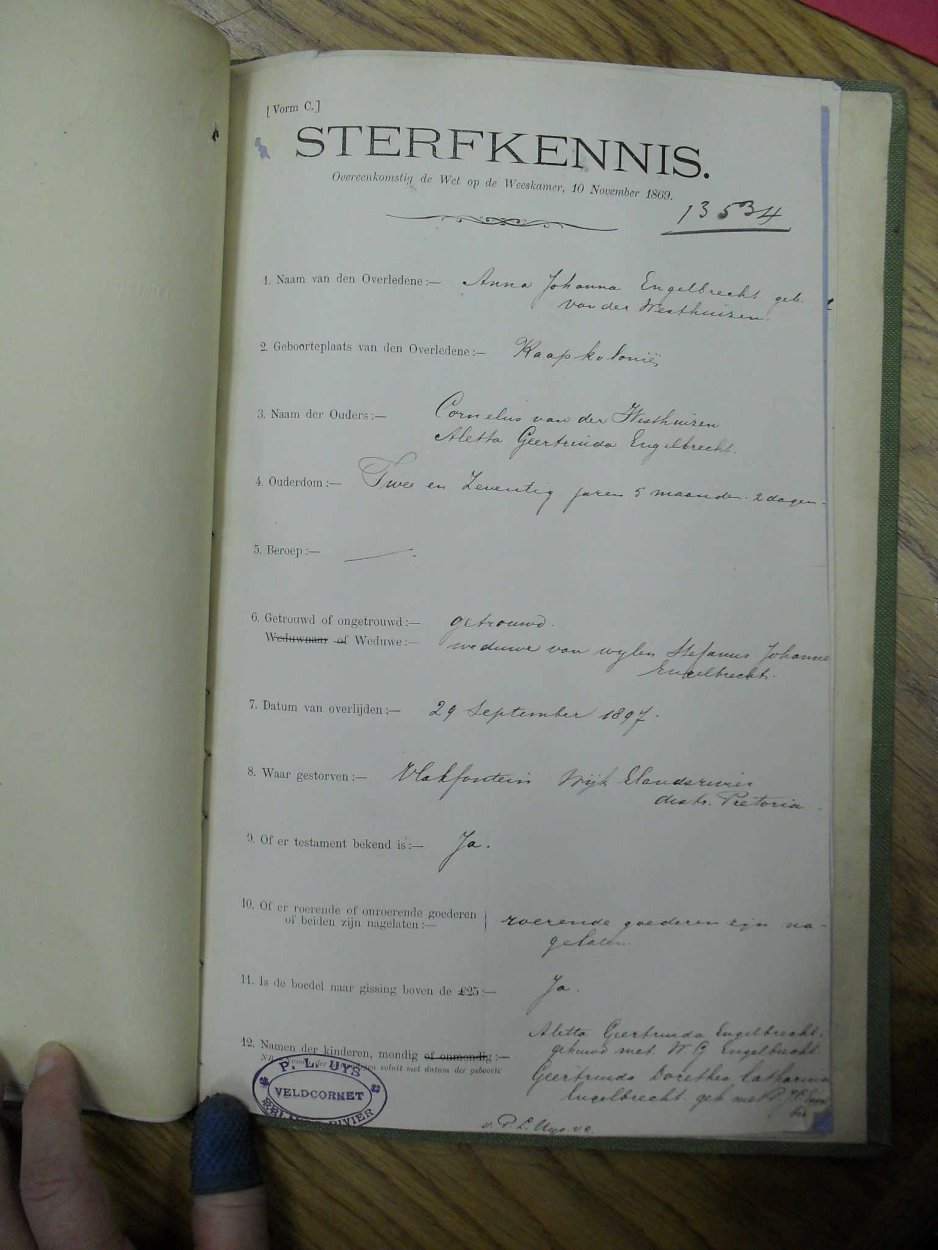 [Vorm C.]
STERFKENNIS.
Overeenkomstig de Wet op de Weeskamer, 10 November 1869.
13534
1. Naam van den Overledene:— Anna Johanna Engelbrecht geb.
van der Westhuizen.
2. Geboorteplaats van den Overledene:— Kaapkolonië,
3. Naam der Ouders:— Cornelus van der Westhuizen
Aletta Geertruida Engelbrecht.
4. Ouderdom:— Twee en Zeventig jaren 5 maanden 2 dagen.
5. Beroep:—
6. Getrouwd of ongetrouwd:— getrouwd.
Weduwnaar of Weduwe:— weduwe van wylen Stefanus Johannes
Engelbrecht.
7. Datum van overlijden:— 29 September 1897.
8. Waar gestorven:— Vlakfontein Wijk Elandsrivier
distr. Pretoria.
9. Of er testament bekend is:— Ja.
10. Of er roerende of onroerende goederen
of beiden zijn nagelaten:— roerende goederen zijn na-
gelaten.
11. Is de boedel naar gissing boven de £25:— Ja.
12. Namen der kinderen, mondig of onmondig:— Aletta Geertruida Engelbrecht.
gehuwd met W. G. Engelbrecht.
Geertruida Dorethea Catharina
Engelbrecht geh. met
voluit met datum der geboorte
P. L. UYS
VELDCORNET
P. L. Uys vc